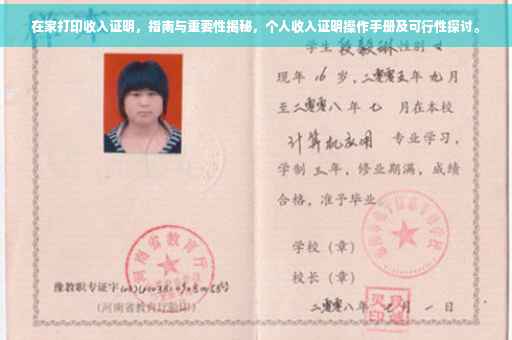 在家打印收入证明，指南与重要性揭秘，个人收入证明操作手册及可行性探讨。
学生 性别 女
现年 16 岁，二零零五年 九月
至二零零八年 七 月在本校
计算机应用 专业学习，
学制 三 年，修业期满，成绩
合格，准予毕业
学校（章）
校长（章）
二零零八年 月 一 日
河南省教育厅
豫教职专证字
（河南省教育厅验印）